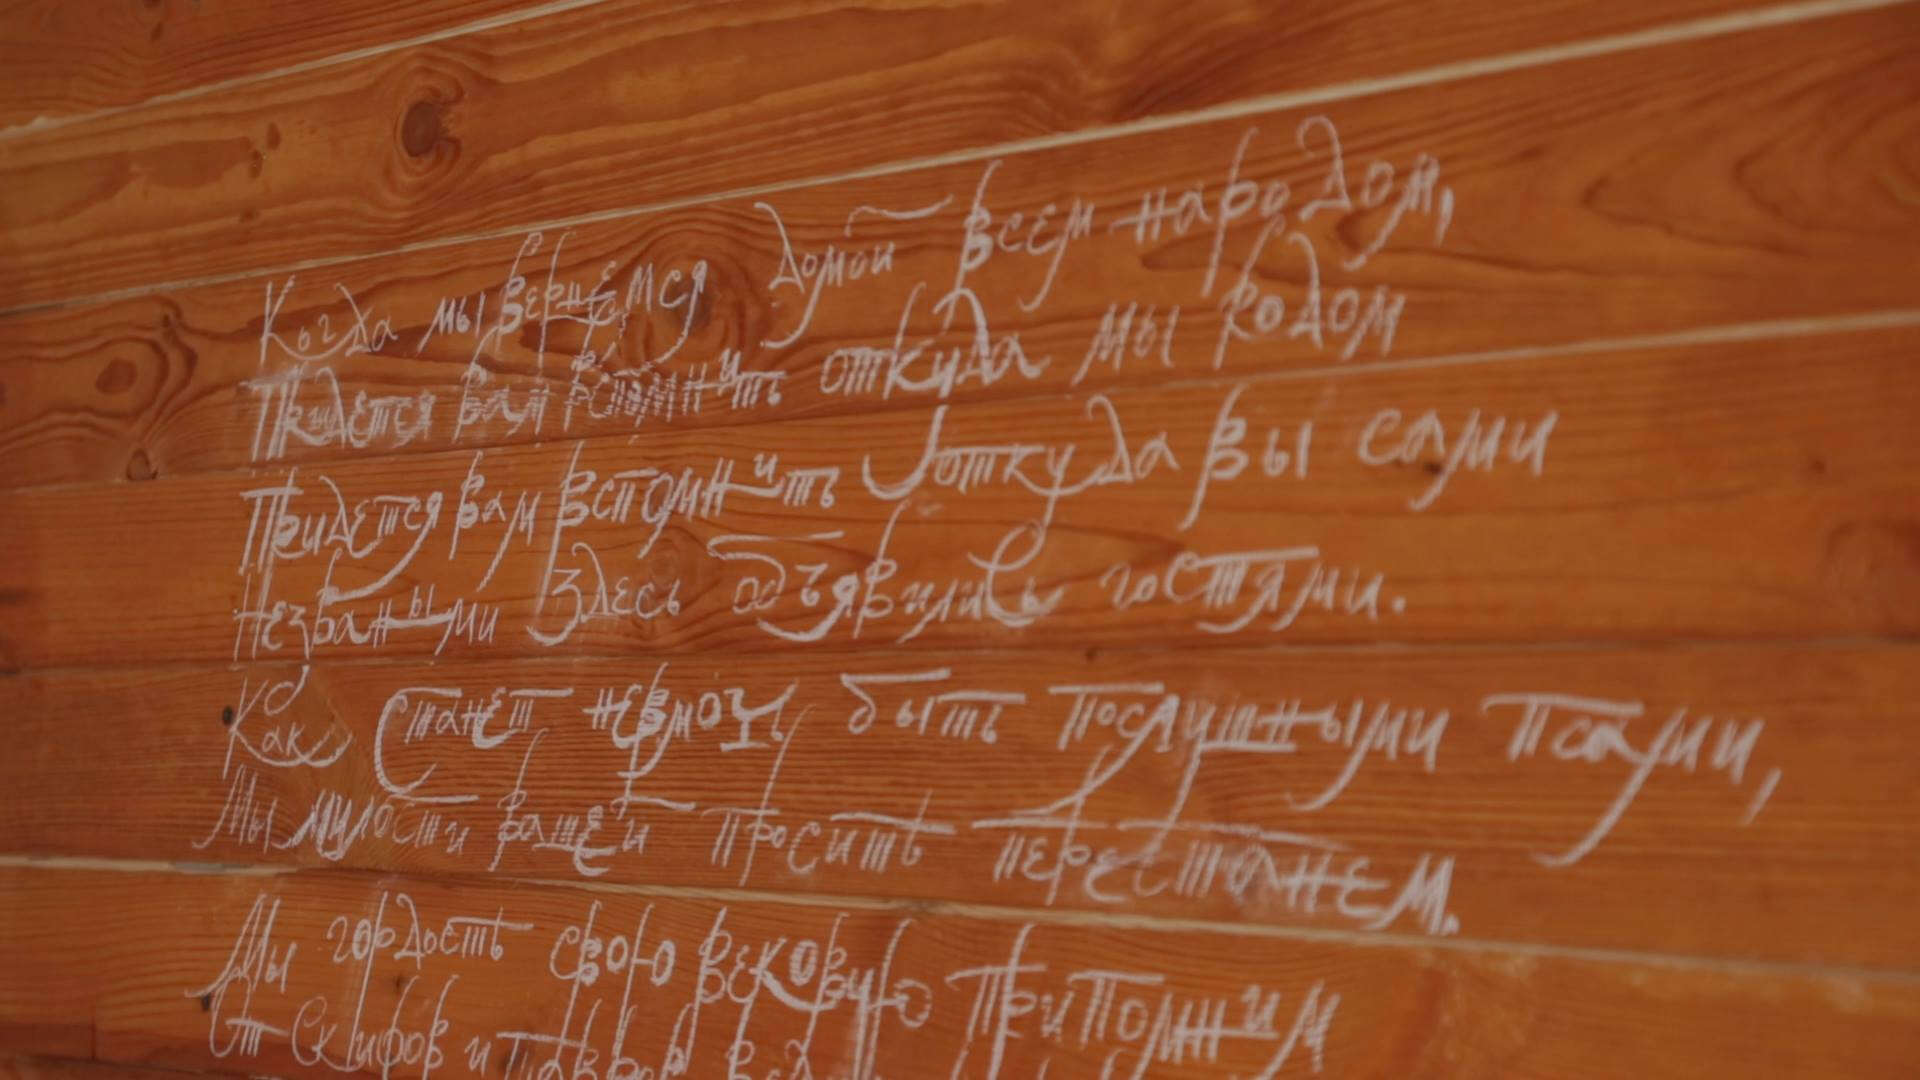 Когда мы вернёмся домой всем народом,
Придется вам вспомнить откуда мы родом
Придется вам вспомнить откуда вы сами
Незваными здесь объявились гостями.
Как станет невмочь быть послушными псами,
Мы милости вашей просить перестанем.
Мы гордость свою вековую припомним
От скифов и тавров